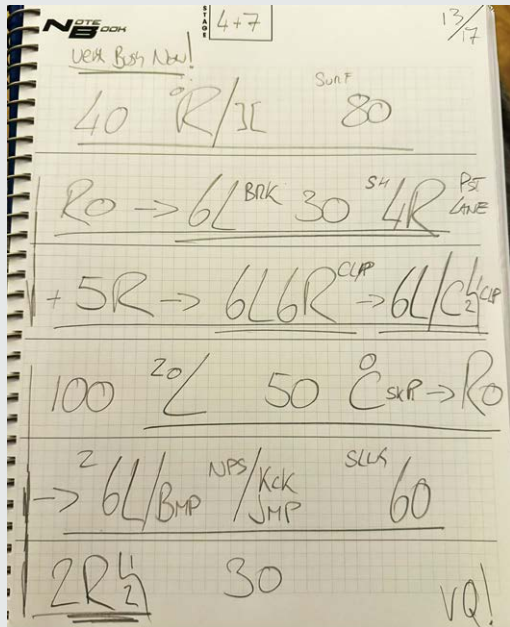 NOTE BOOK STAGE 4+7 13/17
Very Busy Now!
40 R/II SURF 80
Ro → 6L BRK 30 SH 4R PST LANE
+ 5R → 6L6R CLIP → 6L/C CLIP
100 20 L 50 C SKR → Ro
→ 2 6L/BMP NPS /KCK JMP 60
2R 30 VQ!